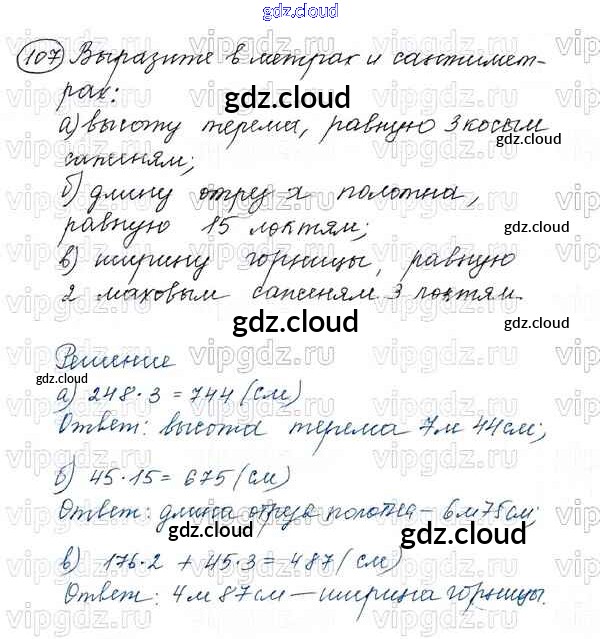 gdz.cloud
107 Выразите в метрах и сантимет-
рах:
gdz.cloud
а) высоту терема, равную 3 косым
саженям;
gdz.cloud
б) длину отреза полотна,
равную 15 локтям;
gdz.cloud
в) ширину горницы, равную
2 маховым саженям 3 локтям.
gdz.cloud
gdz.cloud
Решение
gdz.cloud
а) 248·3=744 (см)
Ответ: высота терема 7м 44см;
gdz.cloud
б) 45·15=675 (см)
Ответ: длина отреза полотна – 6м75см;
gdz.cloud
gdz.cloud
в) 176·2 + 45·3=487 (см)
Ответ: 4м 87см – ширина горницы.
vipgdz.ru